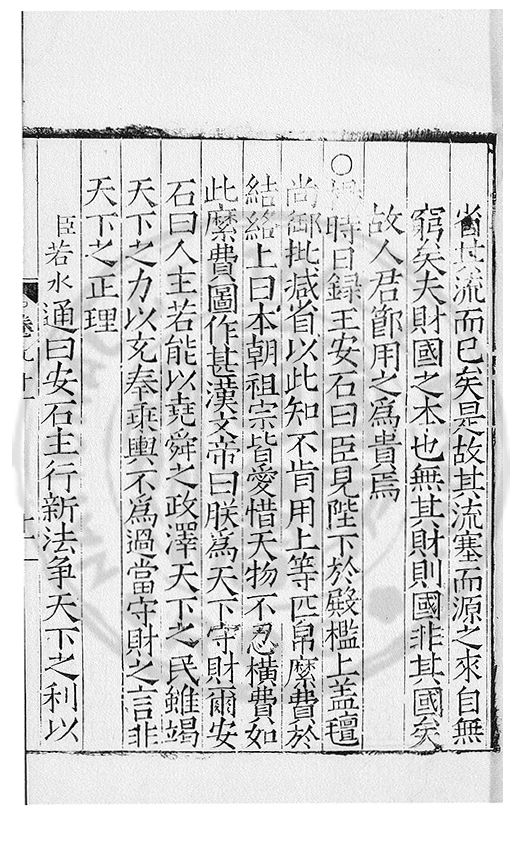 省其流而已矣是故其流塞而源之來自無
窮矣夫財國之本也無其財則國非其國矣
故人君節用之爲貴焉
○時日錄王安石曰臣見陛下於殿檻上盖氊
尚御批减省以此知不肯用上等匹帛縻費於
結絡上曰本朝祖宗皆愛惜天物不忍橫費如
此縻費圖作甚漢文帝曰朕爲天下守財爾安
石曰人主若能以堯舜之政澤天下之民雖竭
天下之力以充奉乘輿不爲過當守財之言非
天下之正理
臣若水通曰安石主行新法爭天下之利以
卷九十